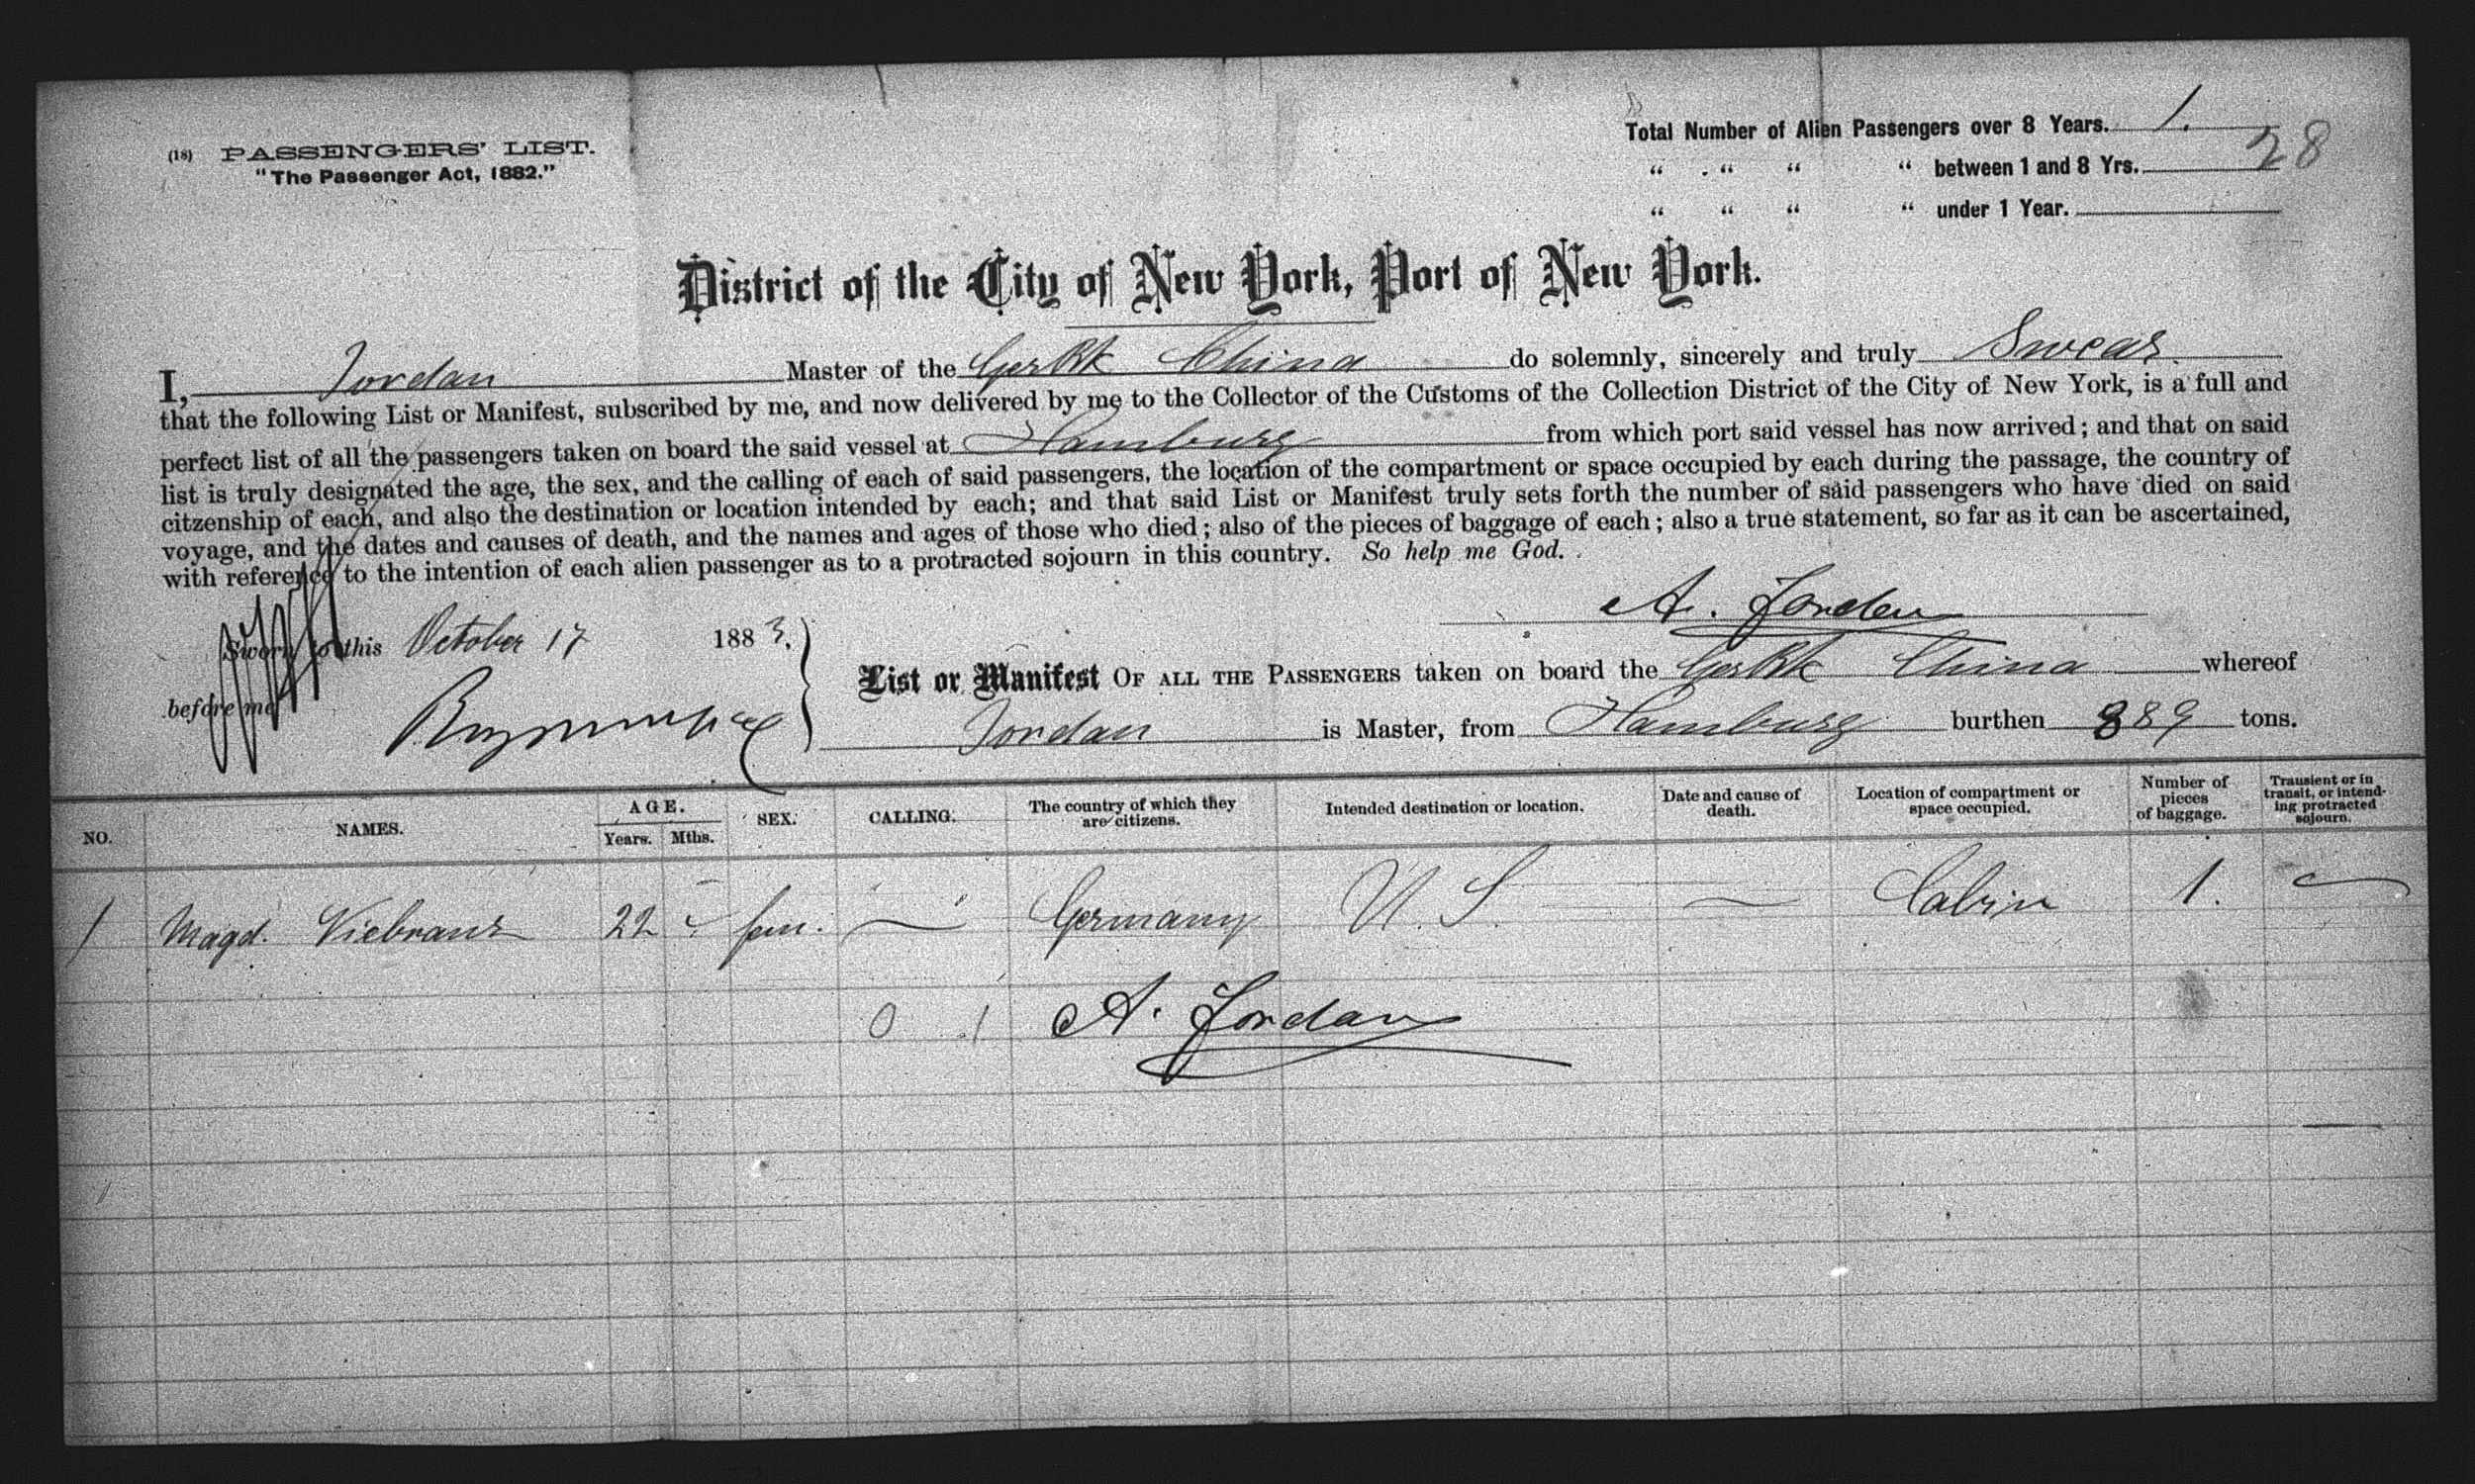 (18) PASSENGERS' LIST.
"The Passenger Act, 1882."
Total Number of Alien Passengers over 8 Years. 1.
" " " " between 1 and 8 Yrs.
28
" " " " under 1 Year.
District of the City of New York, Port of New York.
I, Jordan Master of the Ger Bk China do solemnly, sincerely and truly Swear
that the following List or Manifest, subscribed by me, and now delivered by me to the Collector of the Customs of the Collection District of the City of New York, is a full and
perfect list of all the passengers taken on board the said vessel at Hamburg from which port said vessel has now arrived; and that on said
list is truly designated the age, the sex, and the calling of each of said passengers, the location of the compartment or space occupied by each during the passage, the country of
citzenship of each, and also the destination or location intended by each; and that said List or Manifest truly sets forth the number of said passengers who have died on said
voyage, and the dates and causes of death, and the names and ages of those who died; also of the pieces of baggage of each; also a true statement, so far as it can be ascertained,
with reference to the intention of each alien passenger as to a protracted sojourn in this country. So help me God.
A. Jordan
Sworn to this October 17 1883.
before me
List or Manifest OF ALL THE PASSENGERS taken on board the Ger Bk China whereof
Jordan is Master, from Hamburg burthen 889 tons.
NO. NAMES. AGE. Years. Mths. SEX. CALLING. The country of which they are citizens. Intended destination or location. Date and cause of death. Location of compartment or space occupied. Number of pieces of baggage. Transient or in transit, or intending protracted sojourn.
1 Magd. Viebranz 22 fem. — Germany U. S. — Cabin 1. —
0 1 A. Jordan